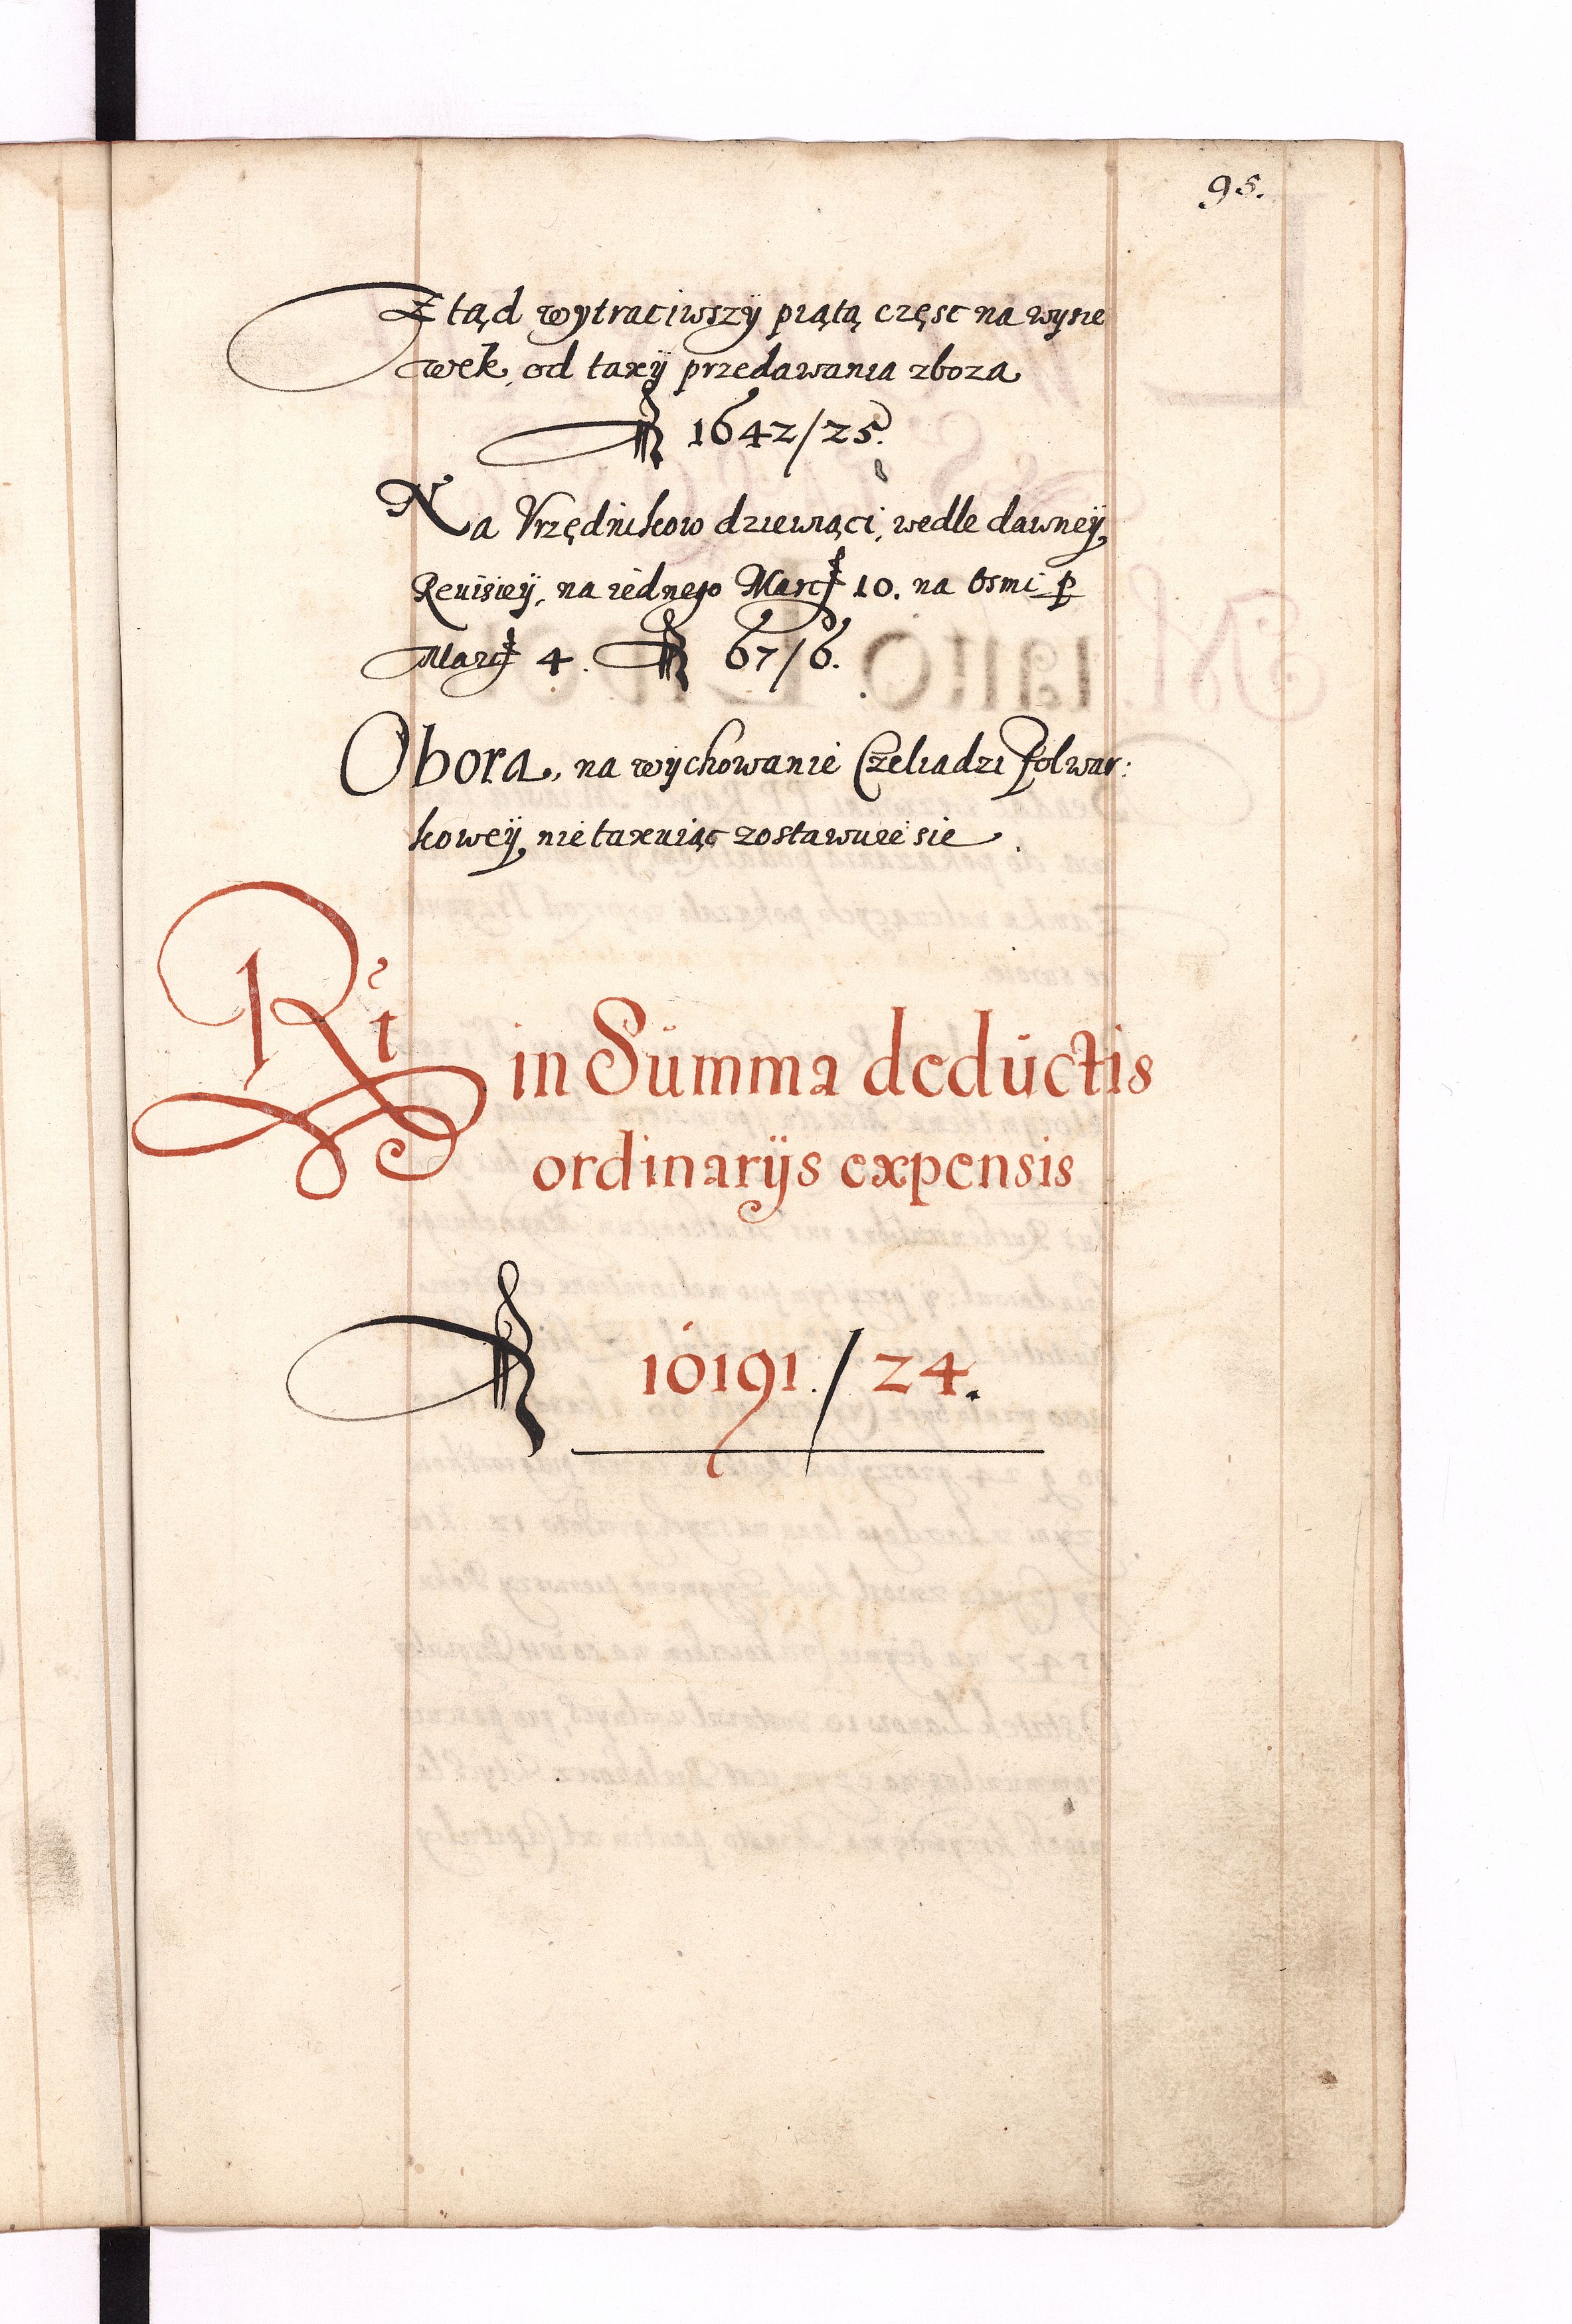 95.
Ztąd wytraciwszÿ piątą częsc na wysie
wek, od taxÿ przedawania zboza
fl 1642/25.
Na Vrzędnikow dziewiąci, wedle dawneÿ
Reuisieÿ, na iednego Marcę 10. na osmi p
Marcę 4. fl 67/6.
Obora, na wychowanie Czeliadzi folwar:
koweÿ, nie taxuiąc zostawuie sie.
Rt in Summa deductis
ordinarijs expensis
fl 10191./24.